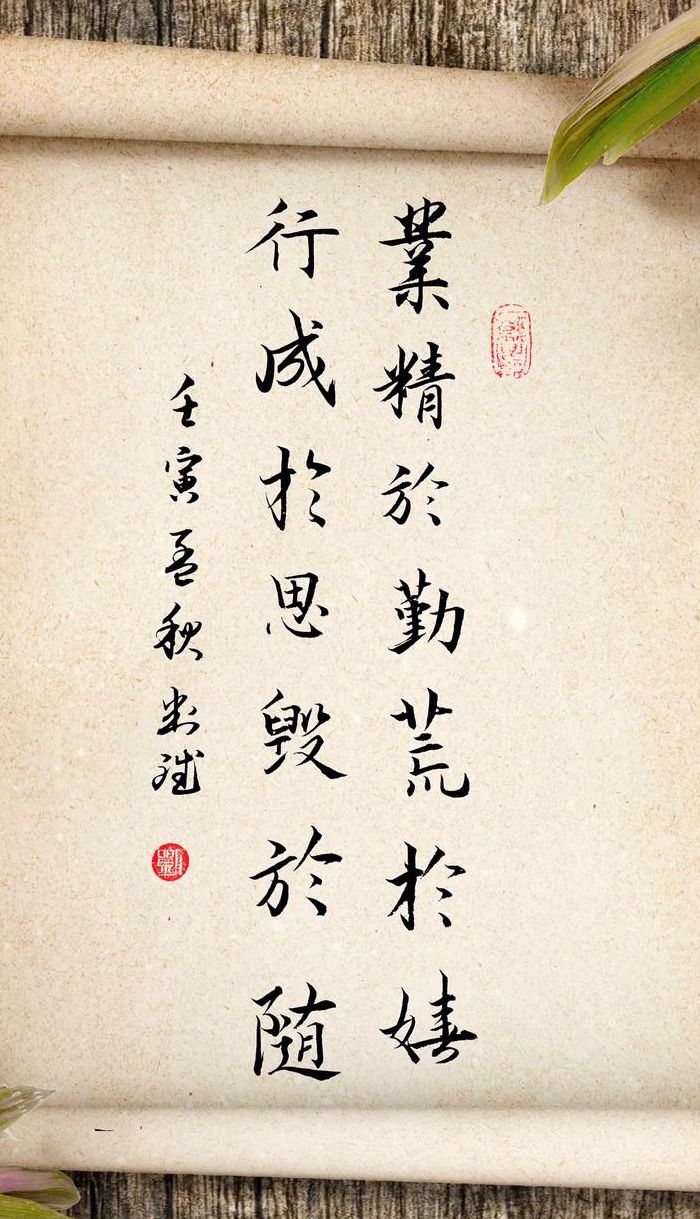 業精於勤荒於嬉
行成於思毀於隨
壬寅孟秋